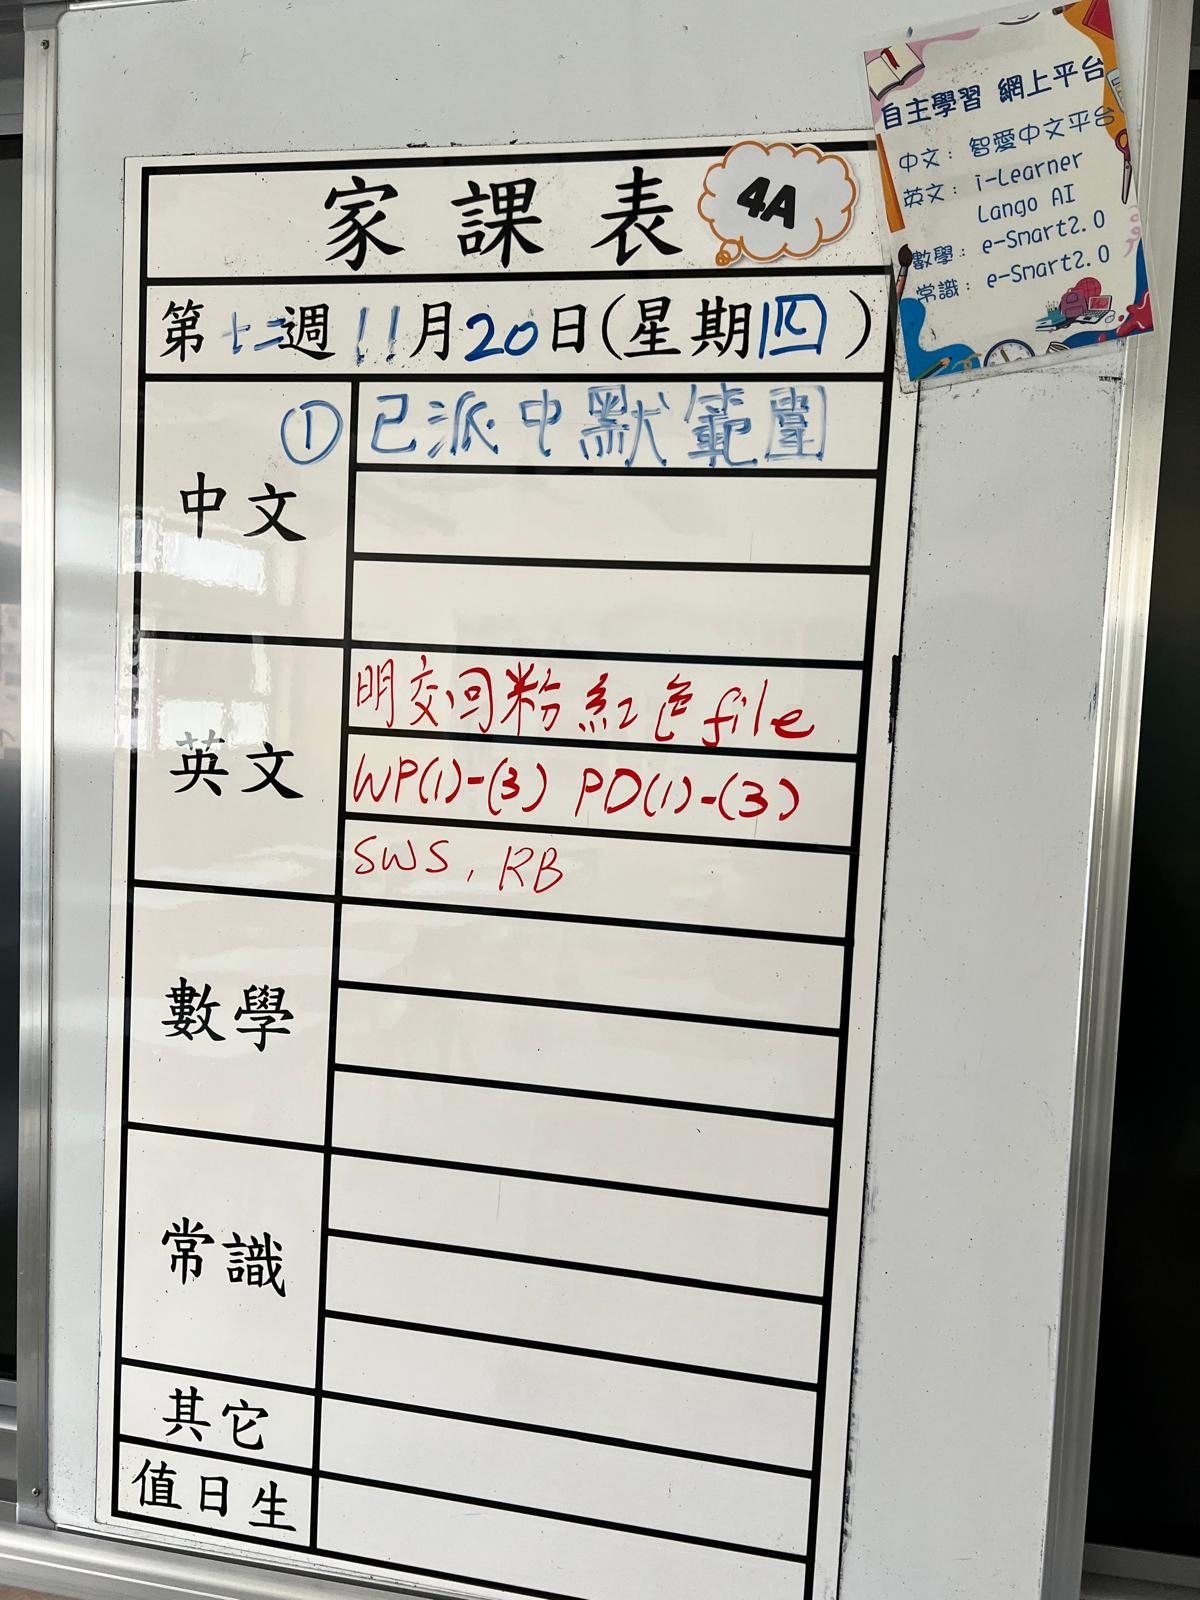 自主學習 網上平台
中文：智愛中文平台
英文：i-Learner
Lango AI
數學：e-Smart2.0
常識：e-Smart2.0
家課表
4A
第十二週 11月20日(星期四)
中文
① 已派中默範圍
英文
明交回粉紅色file
WP(1)-(3) PD(1)-(3)
SWS, RB
數學
常識
其它
值日生